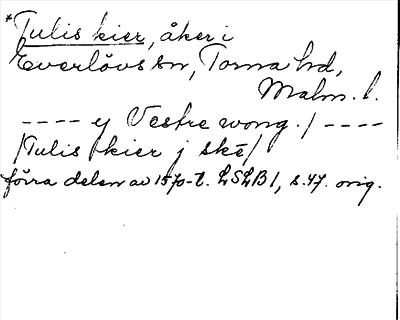 *Tulis kier, åker i
Everlövs sn, Torna hd,
Malm. l.
---- ej Vestre wong. / ----
/Tulis kier j skē/
förra delen av 1570-t. LSLB 1, s. 47. orig.